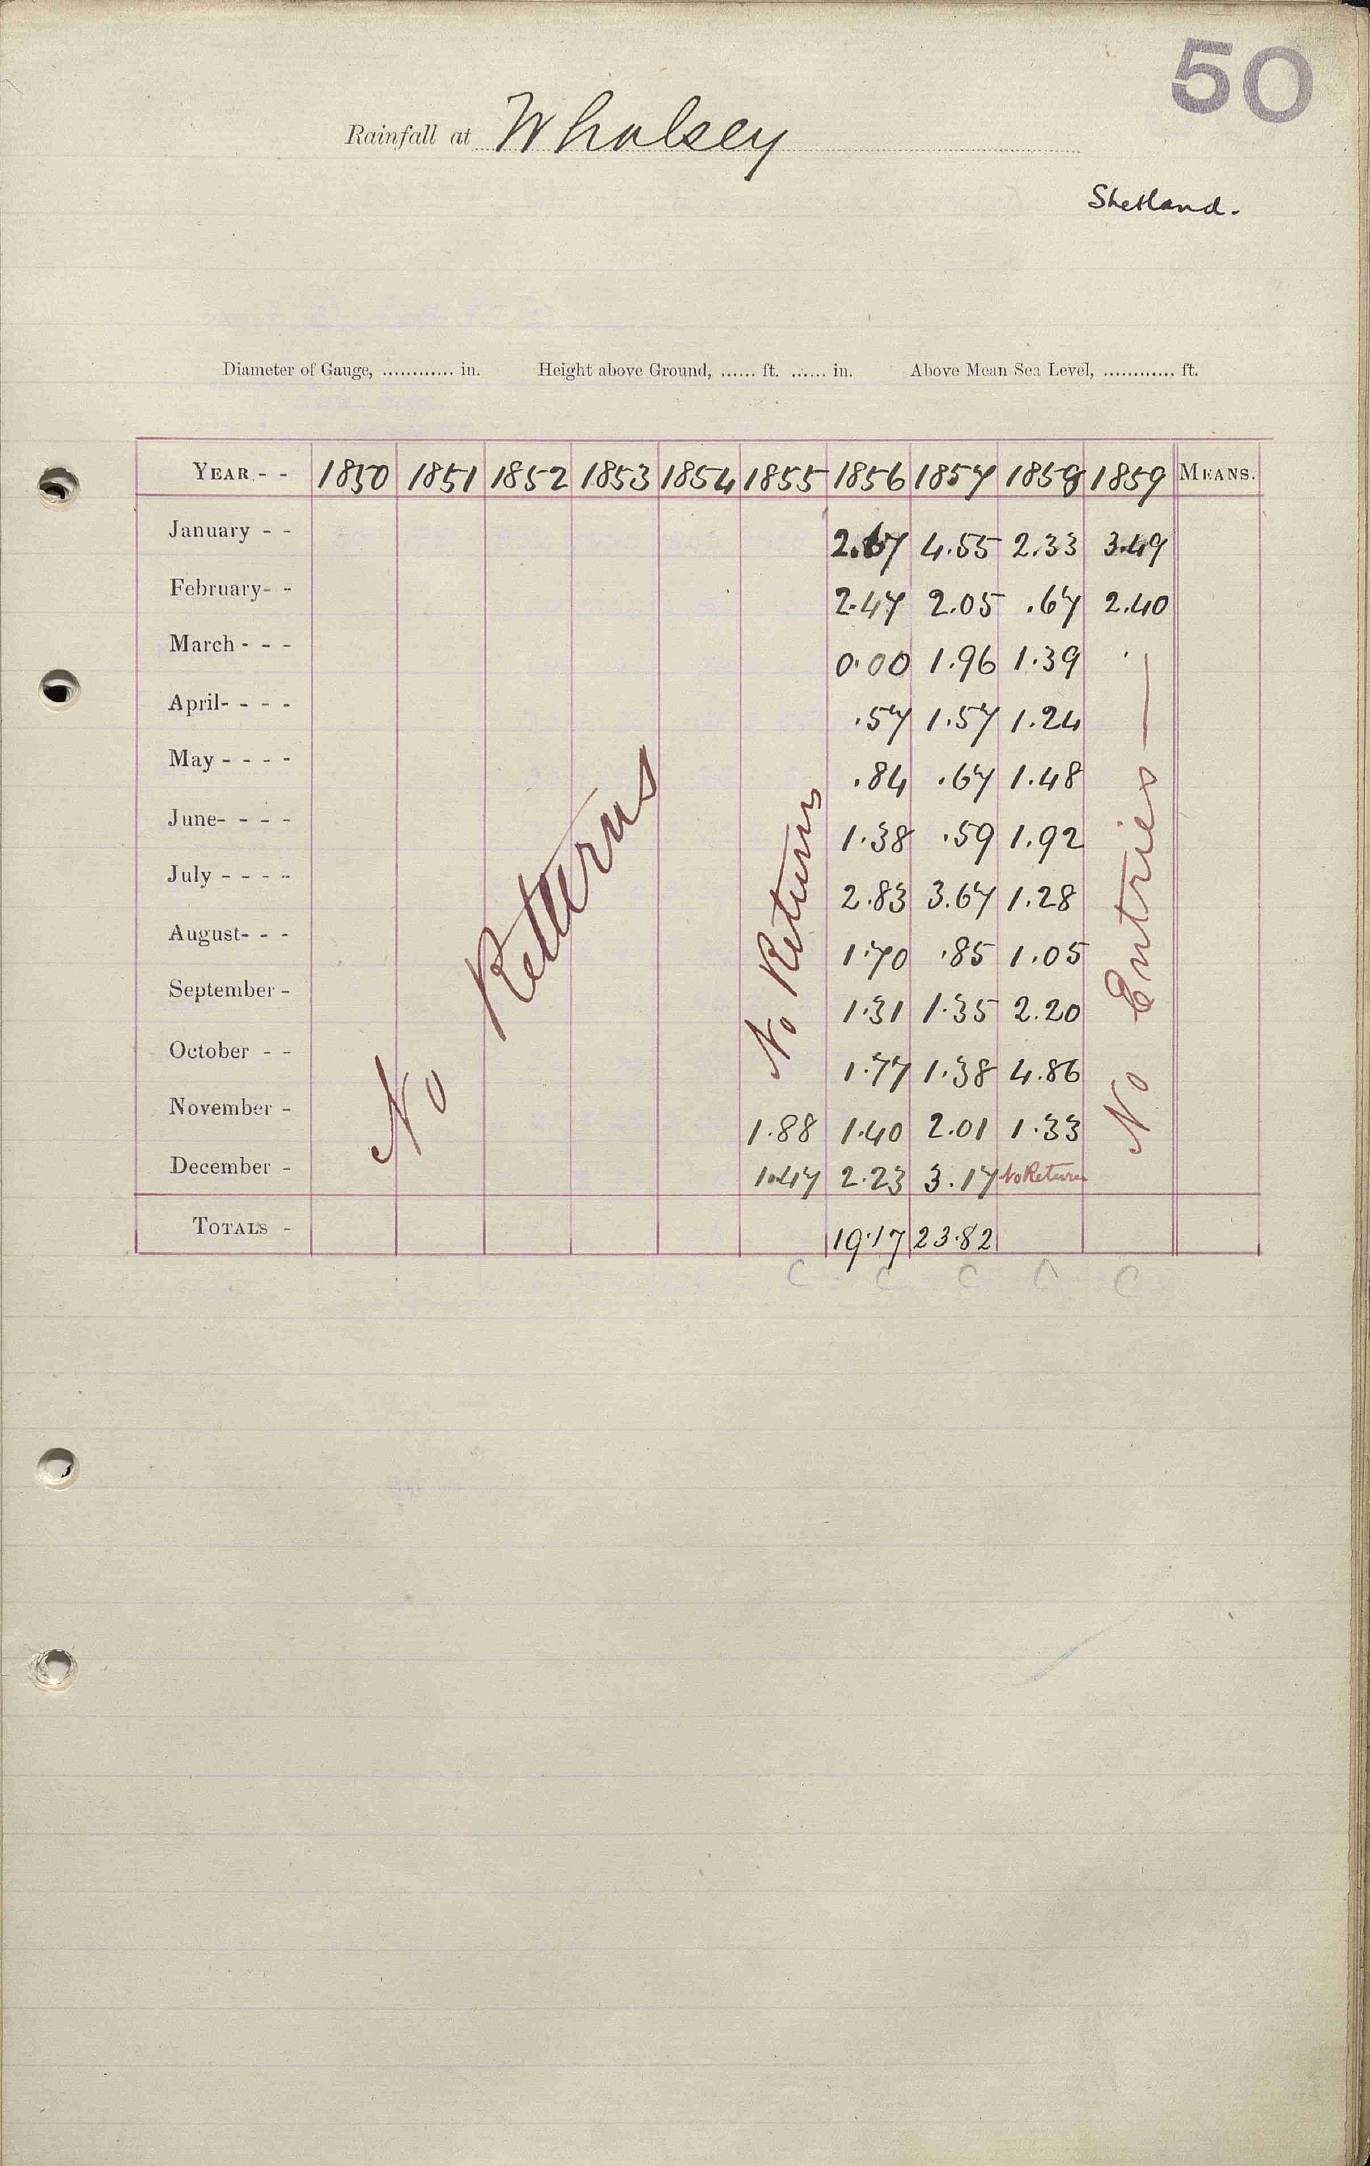 50
Rainfall at Whalsey
Shetland.
Diameter of Gauge, ............ in. Height above Ground, ...... ft. ...... in. Above Mean Sea Level, ............ ft.
YEAR - - 1850 1851 1852 1853 1854 1855 1856 1857 1858 1859 MEANS.
January - - 2.67 4.55 2.33 3.49
February- - 2.47 2.05 .67 2.40
March - - - 0.00 1.96 1.39
April- - - - .57 1.57 1.24
May - - - - .84 .67 1.48
June- - - - 1.38 .59 1.92
July - - - - 2.83 3.67 1.28
August- - - 1.70 .85 1.05
September - 1.31 1.35 2.20
October - - 1.77 1.38 4.86
November - 1.88 1.40 2.01 1.33
December - 1.47 2.23 3.17 No Return
TOTALS - 19.17 23.82
No Returns
No Returns
No Entries —
C C C C C